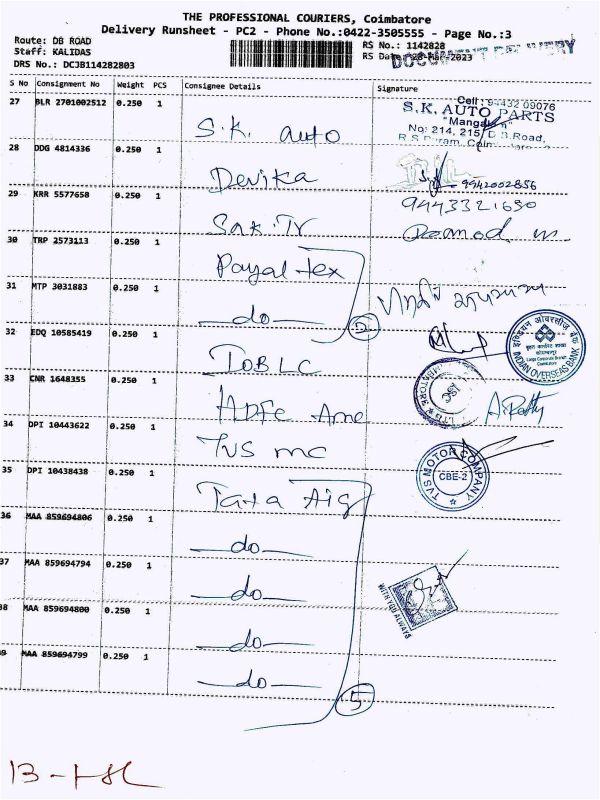 THE PROFESSIONAL COURIERS, Coimbatore
Delivery Runsheet - PC2 - Phone No.:0422-3505555 - Page No.:3
Route: DB ROAD
Staff: KALIDAS
DRS No.: DCJB114282803
RS No.: 1142828
RS Date: 28-Mar-2023
DOCUMENT DELIVERY
S No Consignment No Weight PCS Consignee Details Signature
27 BLR 2701002512 0.250 1 S.K. auto
Cell: 94432 09076
S.K. AUTO PARTS
No: 214, 215, D.B.Road,
28 DDG 4814336 0.250 1 Devika
9942002856
29 KRR 5577658 0.250 1 Sak.Tr
9443321690
30 TRP 2573113 0.250 1 Payal tex
31 MTP 3031883 0.250 1 do
2
32 EDQ 10585419 0.250 1 IOB LC
इंडियन ओवरसीज़ बैंक
INDIAN OVERSEAS BANK
33 CNR 1648355 0.250 1 HDFC Ame
34 DPI 10443622 0.250 1 TVS mc
TVS MOTOR COMPANY
CBE-2
35 DPI 10438438 0.250 1 Tata Aig
36 MAA 859694806 0.250 1 do
37 MAA 859694794 0.250 1 do
WITH YOU ALWAYS
38 MAA 859694800 0.250 1 do
39 MAA 859694799 0.250 1 do
5